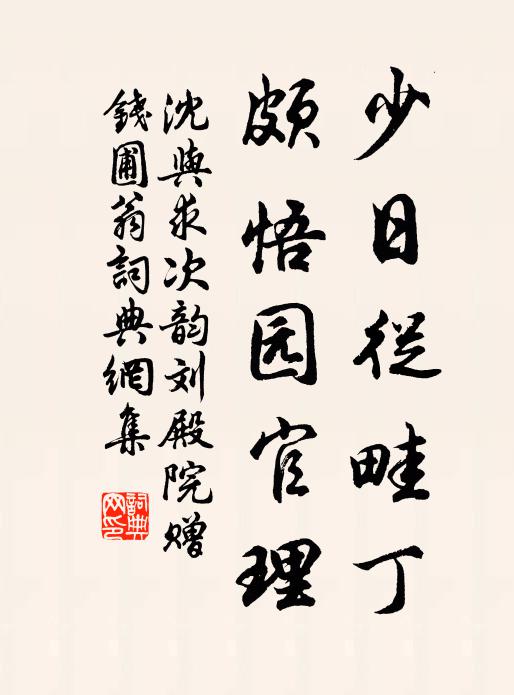 少日從畦丁
頗悟园官理
沈與求次韵刘殿院赠
錢圃翁詞典網集
詞典
网印